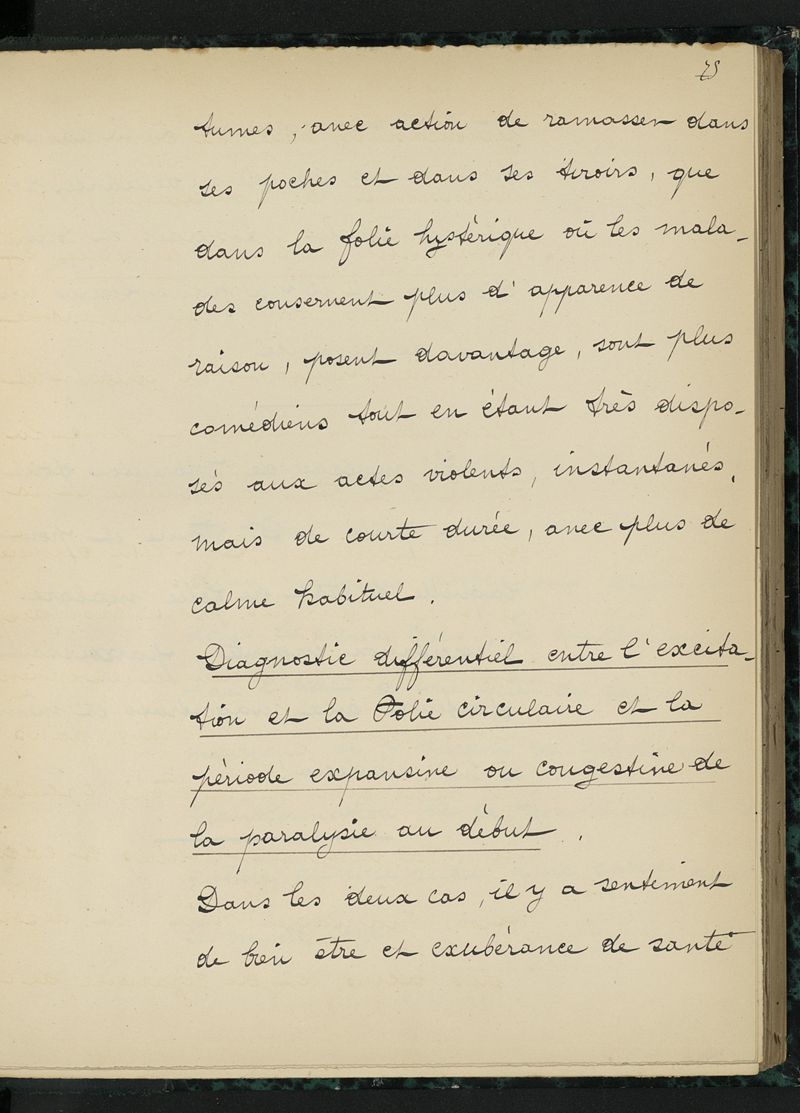 75
tumes, avec action de ramasser dans
ses poches et dans ses tiroirs, que
dans la folie hystérique où les mala-
des conservent plus d'apparence de
raison, posent davantage, sont plus
comédiens tout en étant très dispo-
sés aux actes violents, instantanés,
mais de courte durée, avec plus de
calme habituel.
Diagnostic différentiel entre l'excita-
tion et la Folie circulaire et la
période expansive ou congestive de
la paralysie au début.
Dans les deux cas, il y a sentiment
de bien être et exubérance de santé